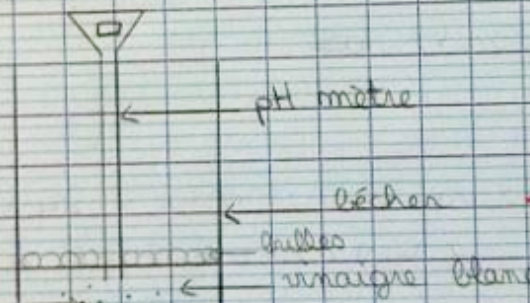 pH mètre
bécher
bulles
vinaigre blanc